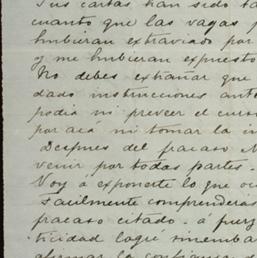 Tus cartas han sido ta
cuanto que las vagas
hubieran extraviado por
y me hubieran expuesto
No debes extrañar que
dado instrucciones ante
podia ni prever el curso
por acá ni tomar la in
Despues del fracaso
venir por todas partes.
Voy a exponerte lo que oc
Facilmente comprenderás
fracaso citado. á fuerz
ticidad logré
afirmar la confianza